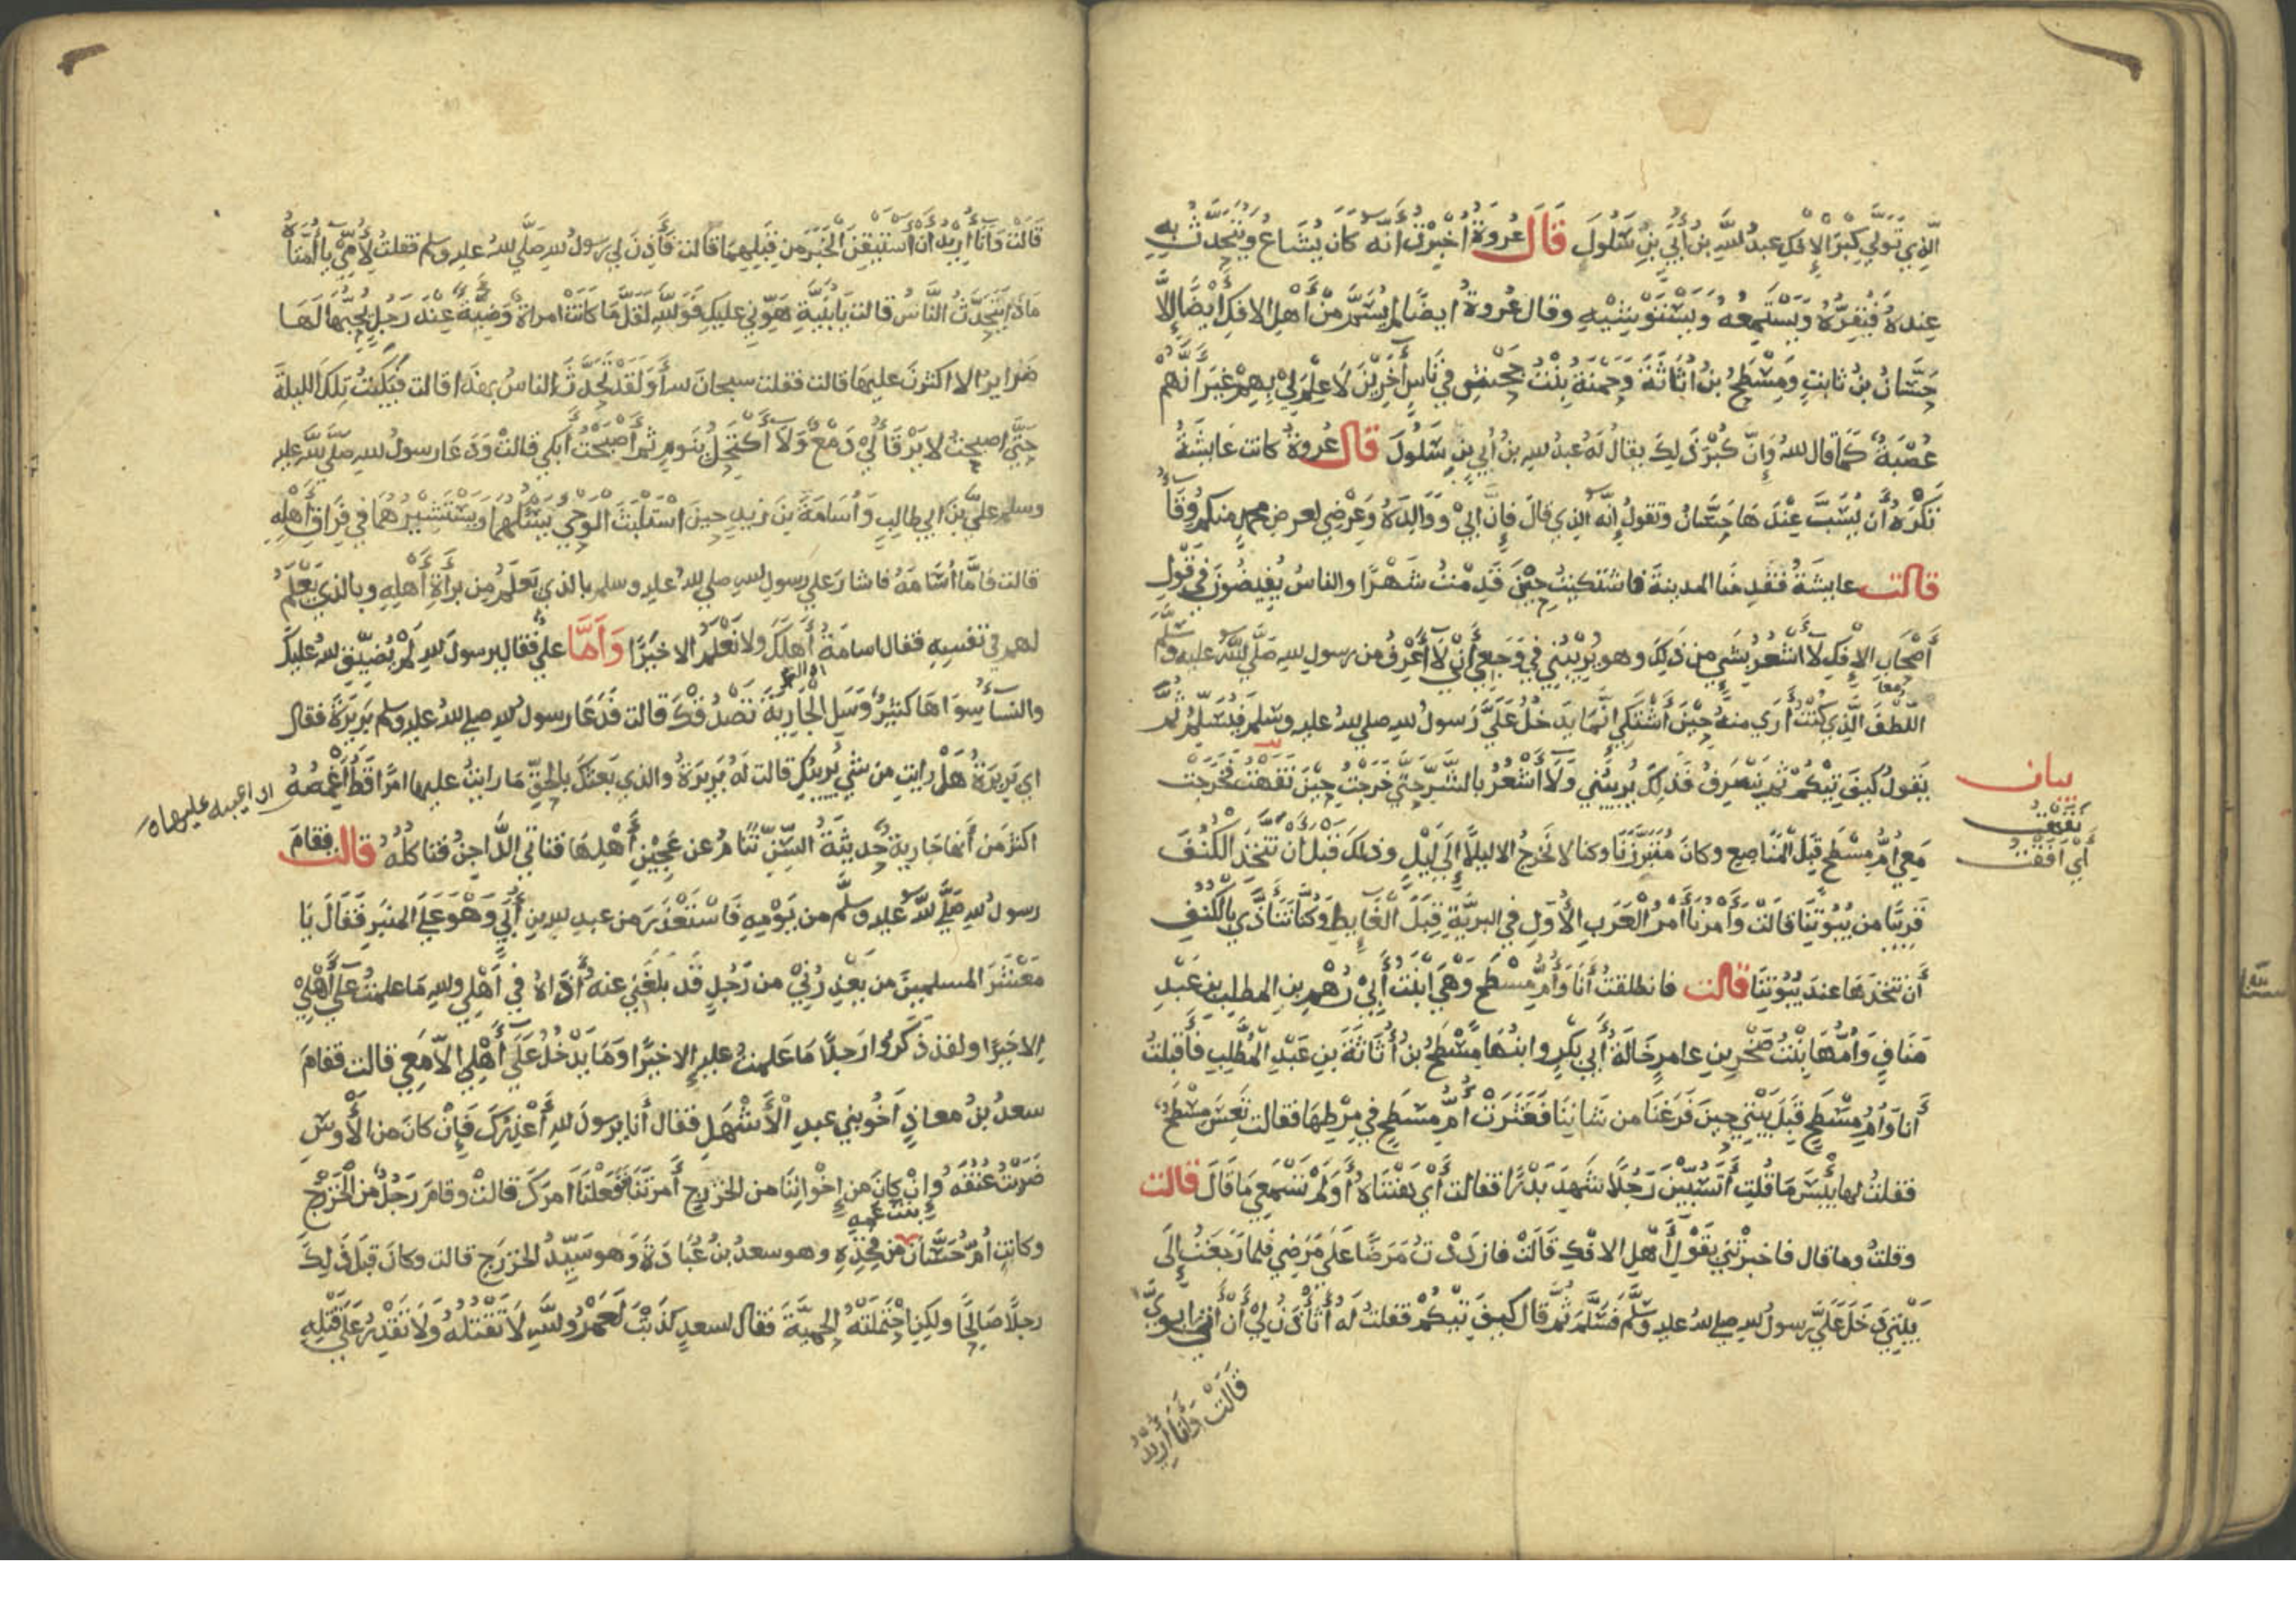 الذي تولي كبر الافك عبد الله بن أبي بن سلول قال عروة اخبرت أنه كان يشاع ويتحدث به
عنده فيقره ويستمعه ويستوشيه وقال عروة ايضا لم يسم من أهل الافك ايضا إلا
حسان بن ثابت ومسطح بن اثاثة وحمنة بنت جحش في ناس أخرين لا علم لي بهم غير أنهم
عصبة كما قال الله وإن كبر ذلك يقال له عبد الله بن أبي بن سلول قال عروة كانت عايشة
تكره أن يسب عندها حسان وتقول إنه الذي قال فإن أبي ووالده وعرضي لعرض محمد منكم وقاء
قالت عايشة فقدمنا المدينة فاشتكيت حين قدمت شهرا والناس يفيضون في قول
أصحاب الافك لا أشعر بشي من ذلك وهو يريبني في وجعي أني لا أعرف من رسول الله صلي الله عليه وسلم
اللطف الذي كنت أري منه حين أشتكي إنما يدخل علي رسول الله صلي الله عليه وسلم فيسلم ثم
يقول كيف تيكم ثم ينصرف فذلك يريبني ولا أشعر بالشر حتي خرجت حين نقهت فخرجت
بيان
نقهت
أي أفقت
معي أم مسطح قبل المناصع وكان متبرزنا وكنا لا نخرج الا ليلا إلي ليل وذلك قبل أن نتخذ الكنف
قريبا من بيوتنا قالت وأمرنا أمر العرب الأول في البرية قبل الغايط وكنا نتأذي بالكنف
أن نتخذها عند بيوتنا قالت فانطلقت أنا وأم مسطح وهي ابنت أبي رهم بن المطلب بن عبد
مناف وأمها بنت صخر بن عامر خالة أبي بكر وابنها مسطح بن أثاثة بن عبد المطلب فأقبلت
أنا وأم مسطح قبل بيتي حين فرغنا من شاننا فعثرت أم مسطح في مرطها فقالت تعس مسطح
فقلت لها بئس ما قلت أتسبين رجلا شهد بدرا فقالت أي هنتاه أولم تسمعي ما قال قالت
وقلت وما قال فاخبرتني بقول أهل الافك قالت فازددت مرضا علي مرضي فلما رجعت إلي
بيتي دخل علي رسول الله صلي الله عليه وسلم فسلم ثم قال كيف تيكم فقلت له أتأذن لي أن أتي ابوي
قالت وأنا أريد
قالت وأنا أريد أن أستيقن الخبر من قبلهما قالت فأذن لي رسول الله صلي الله عليه وسلم فقلت لأمي يا أمتاه
ماذا يتحدث الناس قالت يا بنية هوني عليك فوالله لقل ما كانت امراة وضيئة عند رجل يحبها لها
ضراير الا اكثرن عليها قالت فقلت سبحان الله أولقد تحدث الناس بهذا قالت فبكيت تلك الليلة
حتي اصبحت لا يرقأ لي دمع ولا أكتحل بنوم ثم أصبحت أبكي قالت ودعا رسول الله صلي الله عليه
وسلم علي بن ابي طالب وأسامة بن زيد حين استلبث الوحي يسئلهما ويستشيرهما في فراق أهله
قالت فاما أسامة فاشار علي رسول الله صلي الله عليه وسلم بالذي يعلم من براة أهله وبالذي يعلم
لهم في نفسه فقال اسامة أهلك ولا نعلم الا خيرا وأما علي فقال يرسول الله لم يضيق الله عليك
والنسأ سواها كثير وسل الجارية تصدقك قالت فدعا رسول الله صلي الله عليه وسلم بريرة فقال
اي بريرة هل رايت من شي يريبك قالت له بريرة والذي بعثك بالحق ما رايت عليها امرا قط أغمصه
اي اعيبه عليها
اكثر من أنها جارية حديثة السن تنام عن عجين أهلها فتاتي الداجن فتاكله قالت فقام
رسول الله صلي الله عليه وسلم من يومه فاستعذر من عبد الله بن أبي وهو علي المنبر فقال يا
معشر المسلمين من يعذرني من رجل قد بلغني عنه أذاه في أهلي والله ما علمت علي أهلي
الا خيرا ولقد ذكروا رجلا ما علمت عليه إلا خيرا وما يدخل علي أهلي الا معي قالت فقام
سعد بن معاذ أخو بني عبد الأشهل فقال أنا يرسول الله أعذرك فإن كان من الأوس
ضربت عنقه وإن كان من إخواننا من الخزرج أمرتنا ففعلنا أمرك قالت وقام رجل من الخزرج
بنت عمه
وكانت أم حسان من فخذه وهو سعد بن عبادة وهو سيد الخزرج قالت وكان قبل ذلك
رجلا صالحا ولكن احتملته الحمية فقال لسعد كذبت لعمر والله لا تقتله ولا تقدر علي قتله